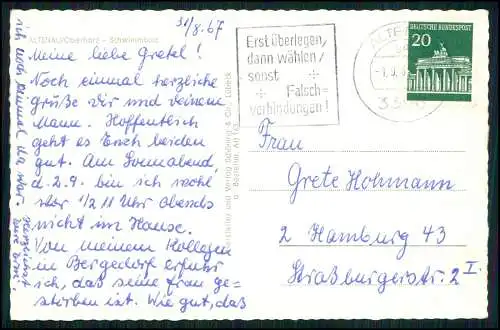 31/8.67
ALTENAU/Oberharz - Schwimmbad
Meine liebe Gretel!
Noch einmal herzliche
Grüße Dir und deinem
Mann. Hoffentlich
geht es Euch beiden
gut. Am Sonnabend,
d. 2.9. bin ich wohl
vor 1/2 11 Uhr abends
nicht im Hause.
Von meinem Kollegen
in Bergedorf erfuhr
ich, dass seine Frau ge-
storben ist. Wie gut, das
ich noch einmal da war.
Herzlichst
Eure Erni.
Hersteller und Verlag Schöning & Co., Lübeck
Erst überlegen,
dann wählen,
sonst
Falsch-
verbindungen!
ALTENAU
DEUTSCHE BUNDESPOST
20
Frau
Grete Hohmann
2 Hamburg 43
Straßburgerstr. 2 I.